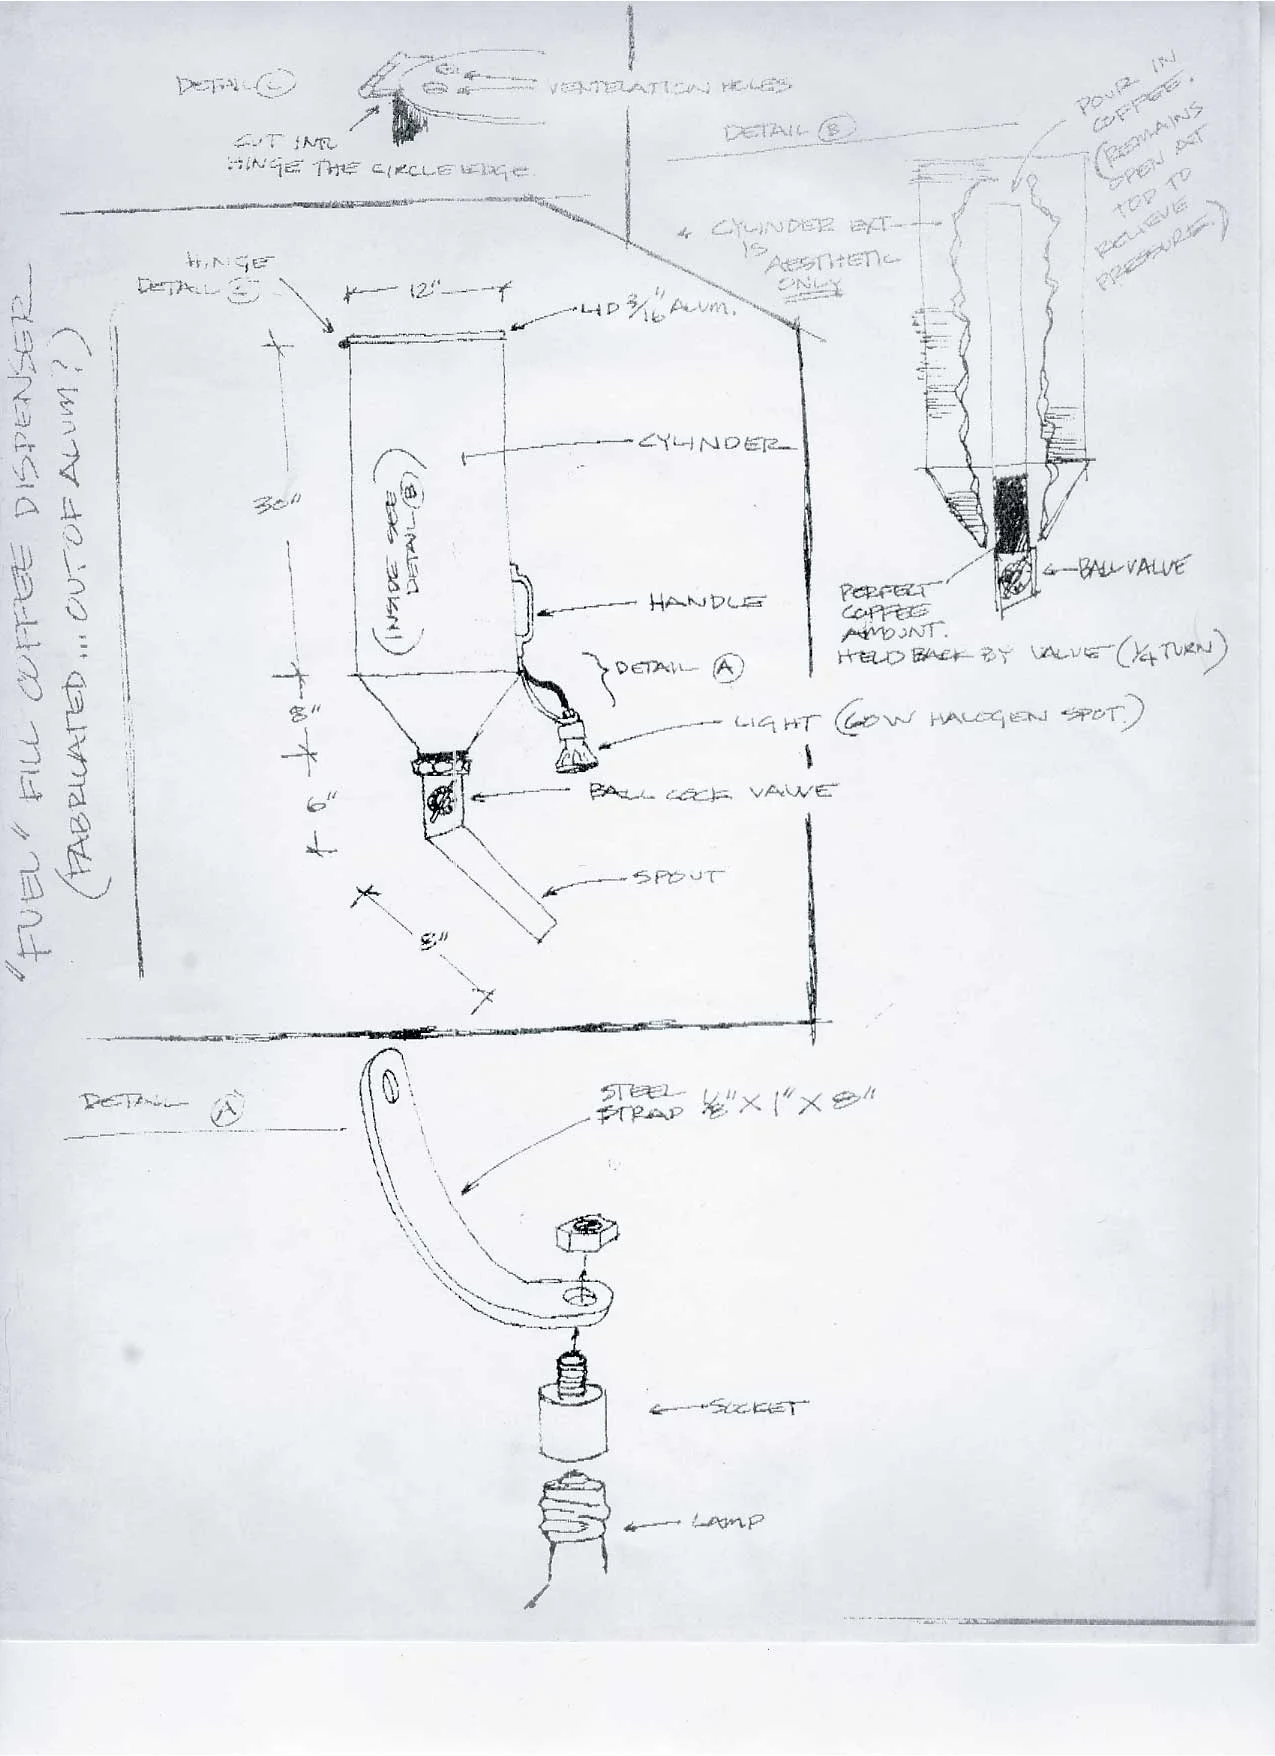 DETAIL C
VENTELATION HOLES
CUT INTO
HINGE THE CIRCLE EDGE.
DETAIL B
POUR IN
COFFEE.
(REMAINS
OPEN AT
TOP TO
RELIEVE
PRESSURE.)
CYLINDER EXT
IS
AESTHETIC
ONLY
"FUEL" FILL COFFEE DISPENSER
(FABRICATED... OUT OF ALUM?)
HINGE
DETAIL C
12"
LID 3/16" ALUM.
30"
CYLINDER
(INSIDE SEE
DETAIL-B)
HANDLE
DETAIL A
8"
LIGHT (60W HALOGEN SPOT.)
BALL COCK VALVE
6"
SPOUT
8"
BALL VALVE
PERFECT
COFFEE
AMOUNT.
HELD BACK BY VALVE (1/4 TURN)
DETAIL A
STEEL
STRAP 1/8" X 1" X 8"
SOCKET
LAMP